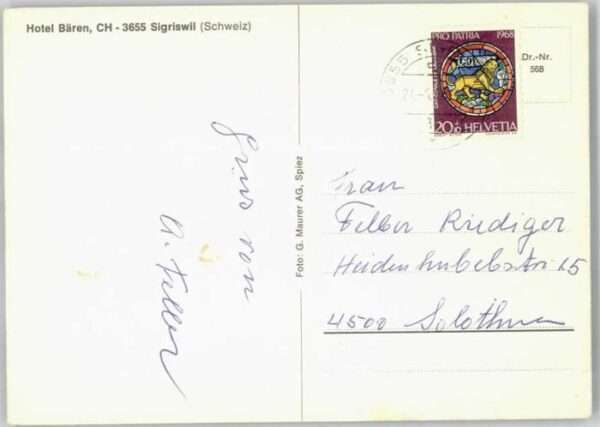 Hotel Bären, CH - 3655 Sigriswil (Schweiz)
PRO PATRIA 1968
20+10 HELVETIA
Dr.-Nr.
568
3655
Gruss von
A. Feller
Foto: G. Maurer AG, Spiez
Frau
Feller Rüdiger
Heidenhubelstr. 15
4500 Solothurn